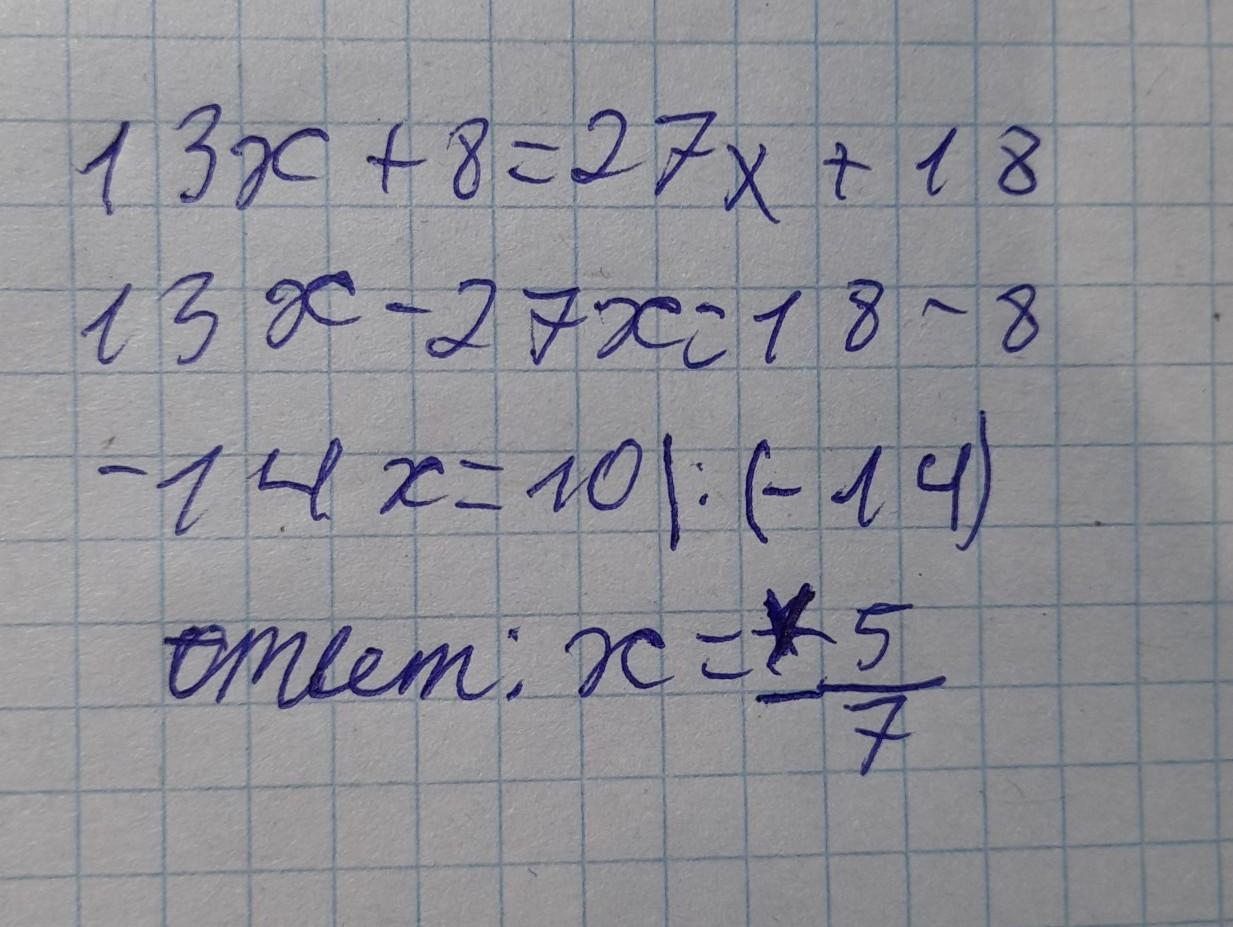 13x + 8 = 27x + 18
13x - 27x = 18 - 8
-14x = 10 | : (-14)
ответ: x = - 5/7